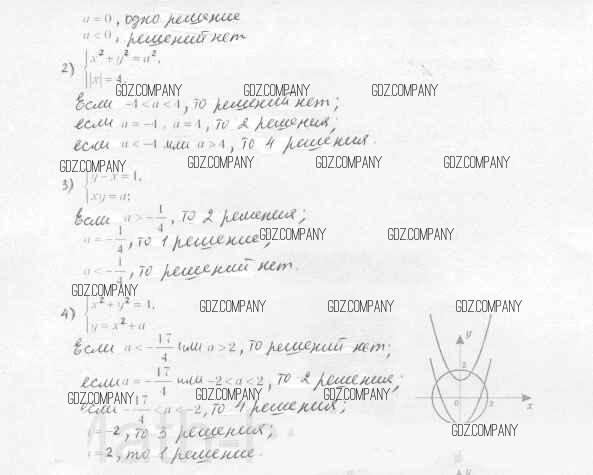 a = 0, одно решение
a < 0, решений нет
2) { x² + y² = a²,
|x| = 4.
GDZ.COMPANY GDZ.COMPANY GDZ.COMPANY
Если −4 < a < 4, то решений нет;
если a = −4, a = 4, то 2 решения;
если a < −4 или a > 4, то 4 решения.
GDZ.COMPANY GDZ.COMPANY GDZ.COMPANY GDZ.COMPANY
3) { y − x = 1,
xy = a;
Если a > −1/4, то 2 решения;
a = −1/4, то 1 решение;
GDZ.COMPANY GDZ.COMPANY
a < −1/4, то решений нет.
GDZ.COMPANY
4) { x² + y² = 4,
GDZ.COMPANY GDZ.COMPANY GDZ.COMPANY
y = x² + a
Если a < −17/4 или a > 2, то решений нет;
если a = −17/4 или −2 < a < 2, то 2 решения;
GDZ.COMPANY GDZ.COMPANY GDZ.COMPANY
если −17/4 < a < −2, то 4 решения;
= −2, то 3 решения;
= 2, то 1 решение.
y
2
0 2 x
GDZ.COMPANY
y